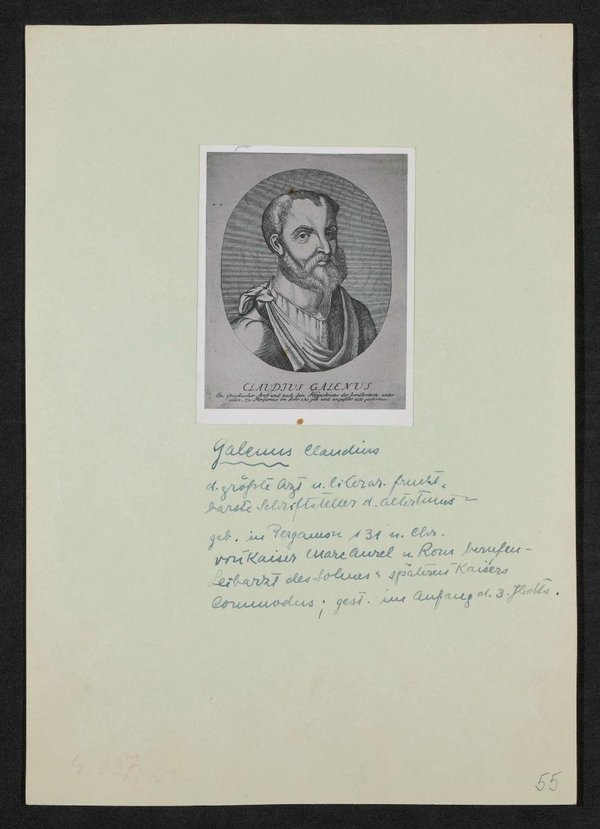 CLAUDIUS GALENUS.
Ein Griechischer Artz und nach dem Hippocrates der berühmteste unter
allen. Zu Pergamus im Jahr 131 geb. und ungefähr 200 gestorben.
Galenus Claudius
d. größte Arzt u. literar. frucht-
barste Schriftsteller d. Altertums –
geb. in Pergamon 131 n. Chr.
von Kaiser Marc Aurel n. Rom berufen –
Leibarzt des Sohnes & späteren Kaisers
Commodus; gest. im Anfang d. 3. Jhdts.
55